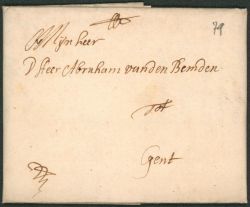 79
Mijn heer
D'heer Abraham vanden Bemden
tot
Gent